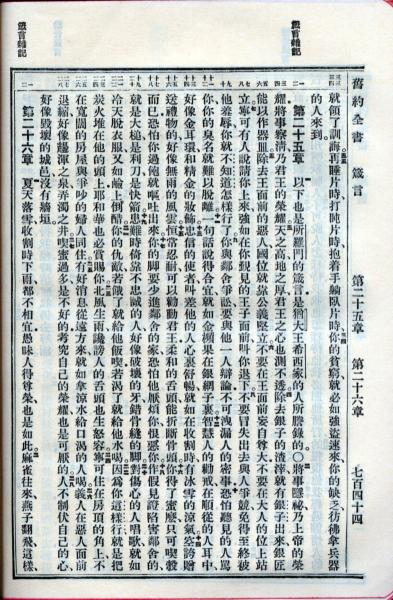 舊約全書 箴言 第二十五章 第二十六章 七百四十四
就領了訓誨再睡片時打盹片時抱着手躺臥片時你的貧窮就必如強盜速來你的缺乏彷彿拿兵器
的人來到。
第二十五章 以下也是所羅門的箴言是猶大王希西家的人所謄錄的○將事隱祕乃上帝的榮
耀將事察清乃君王的榮耀天之高地之厚君王之心也測不透除去銀子的渣滓就有銀子出來銀匠
能以作器皿除去王面前的惡人國位就靠公義堅立不要在王面前妄自尊大不要在大人的位上站
立寧可有人說請你上來強如在你覲見的王子面前叫你退下不要冒失出去與人爭競免得至終被
他羞辱你就不知道怎樣行了你與鄰舍爭訟要與他一人辯論不可洩漏人的密事恐怕聽見的人罵
你你的臭名就難以脫離一句話說得合宜就如金蘋果在銀網子裏智慧人的勸戒在順從的人耳中
好像金耳環和精金的妝飾忠信的使者叫差他的人心裏舒暢就如在收割時有冰雪的涼氣空誇贈
送禮物的好像無雨的風雲恒常忍耐可以勸動君王柔和的舌頭能折斷骨頭你得了蜜麼只可喫彀
而已恐怕你過飽就嘔吐出來你的脚要少進鄰舍的家恐怕他厭煩你恨惡你作假見證陷害鄰舍的
就是大槌是利刀是快箭患難時倚靠不忠誠的人好像破壞的牙錯骨縫的脚對傷心的人唱歌就如
冷天脫衣服又如鹼上倒醋你的仇敵若餓了就給他飯喫若渴了就給他水喝因爲你這樣行就是把
炭火堆在他的頭上耶和華也必賞賜你北風生雨讒謗人的舌頭也生怒容寧可住在房頂的角上不
在寬闊的房屋與爭吵的婦人同住有好消息從遠方來就如拿涼水給口渴的人喝義人在惡人面前
退縮好像渾之泉弄濁之井喫蜜過多是不好的考究自己的榮耀也是可厭的人不制伏自己的心
好像毀壞的城邑沒有牆垣。
第二十六章 夏天落雪收割時下雨都不相宜愚昧人得尊榮也是如此麻雀往來燕子翻飛這樣